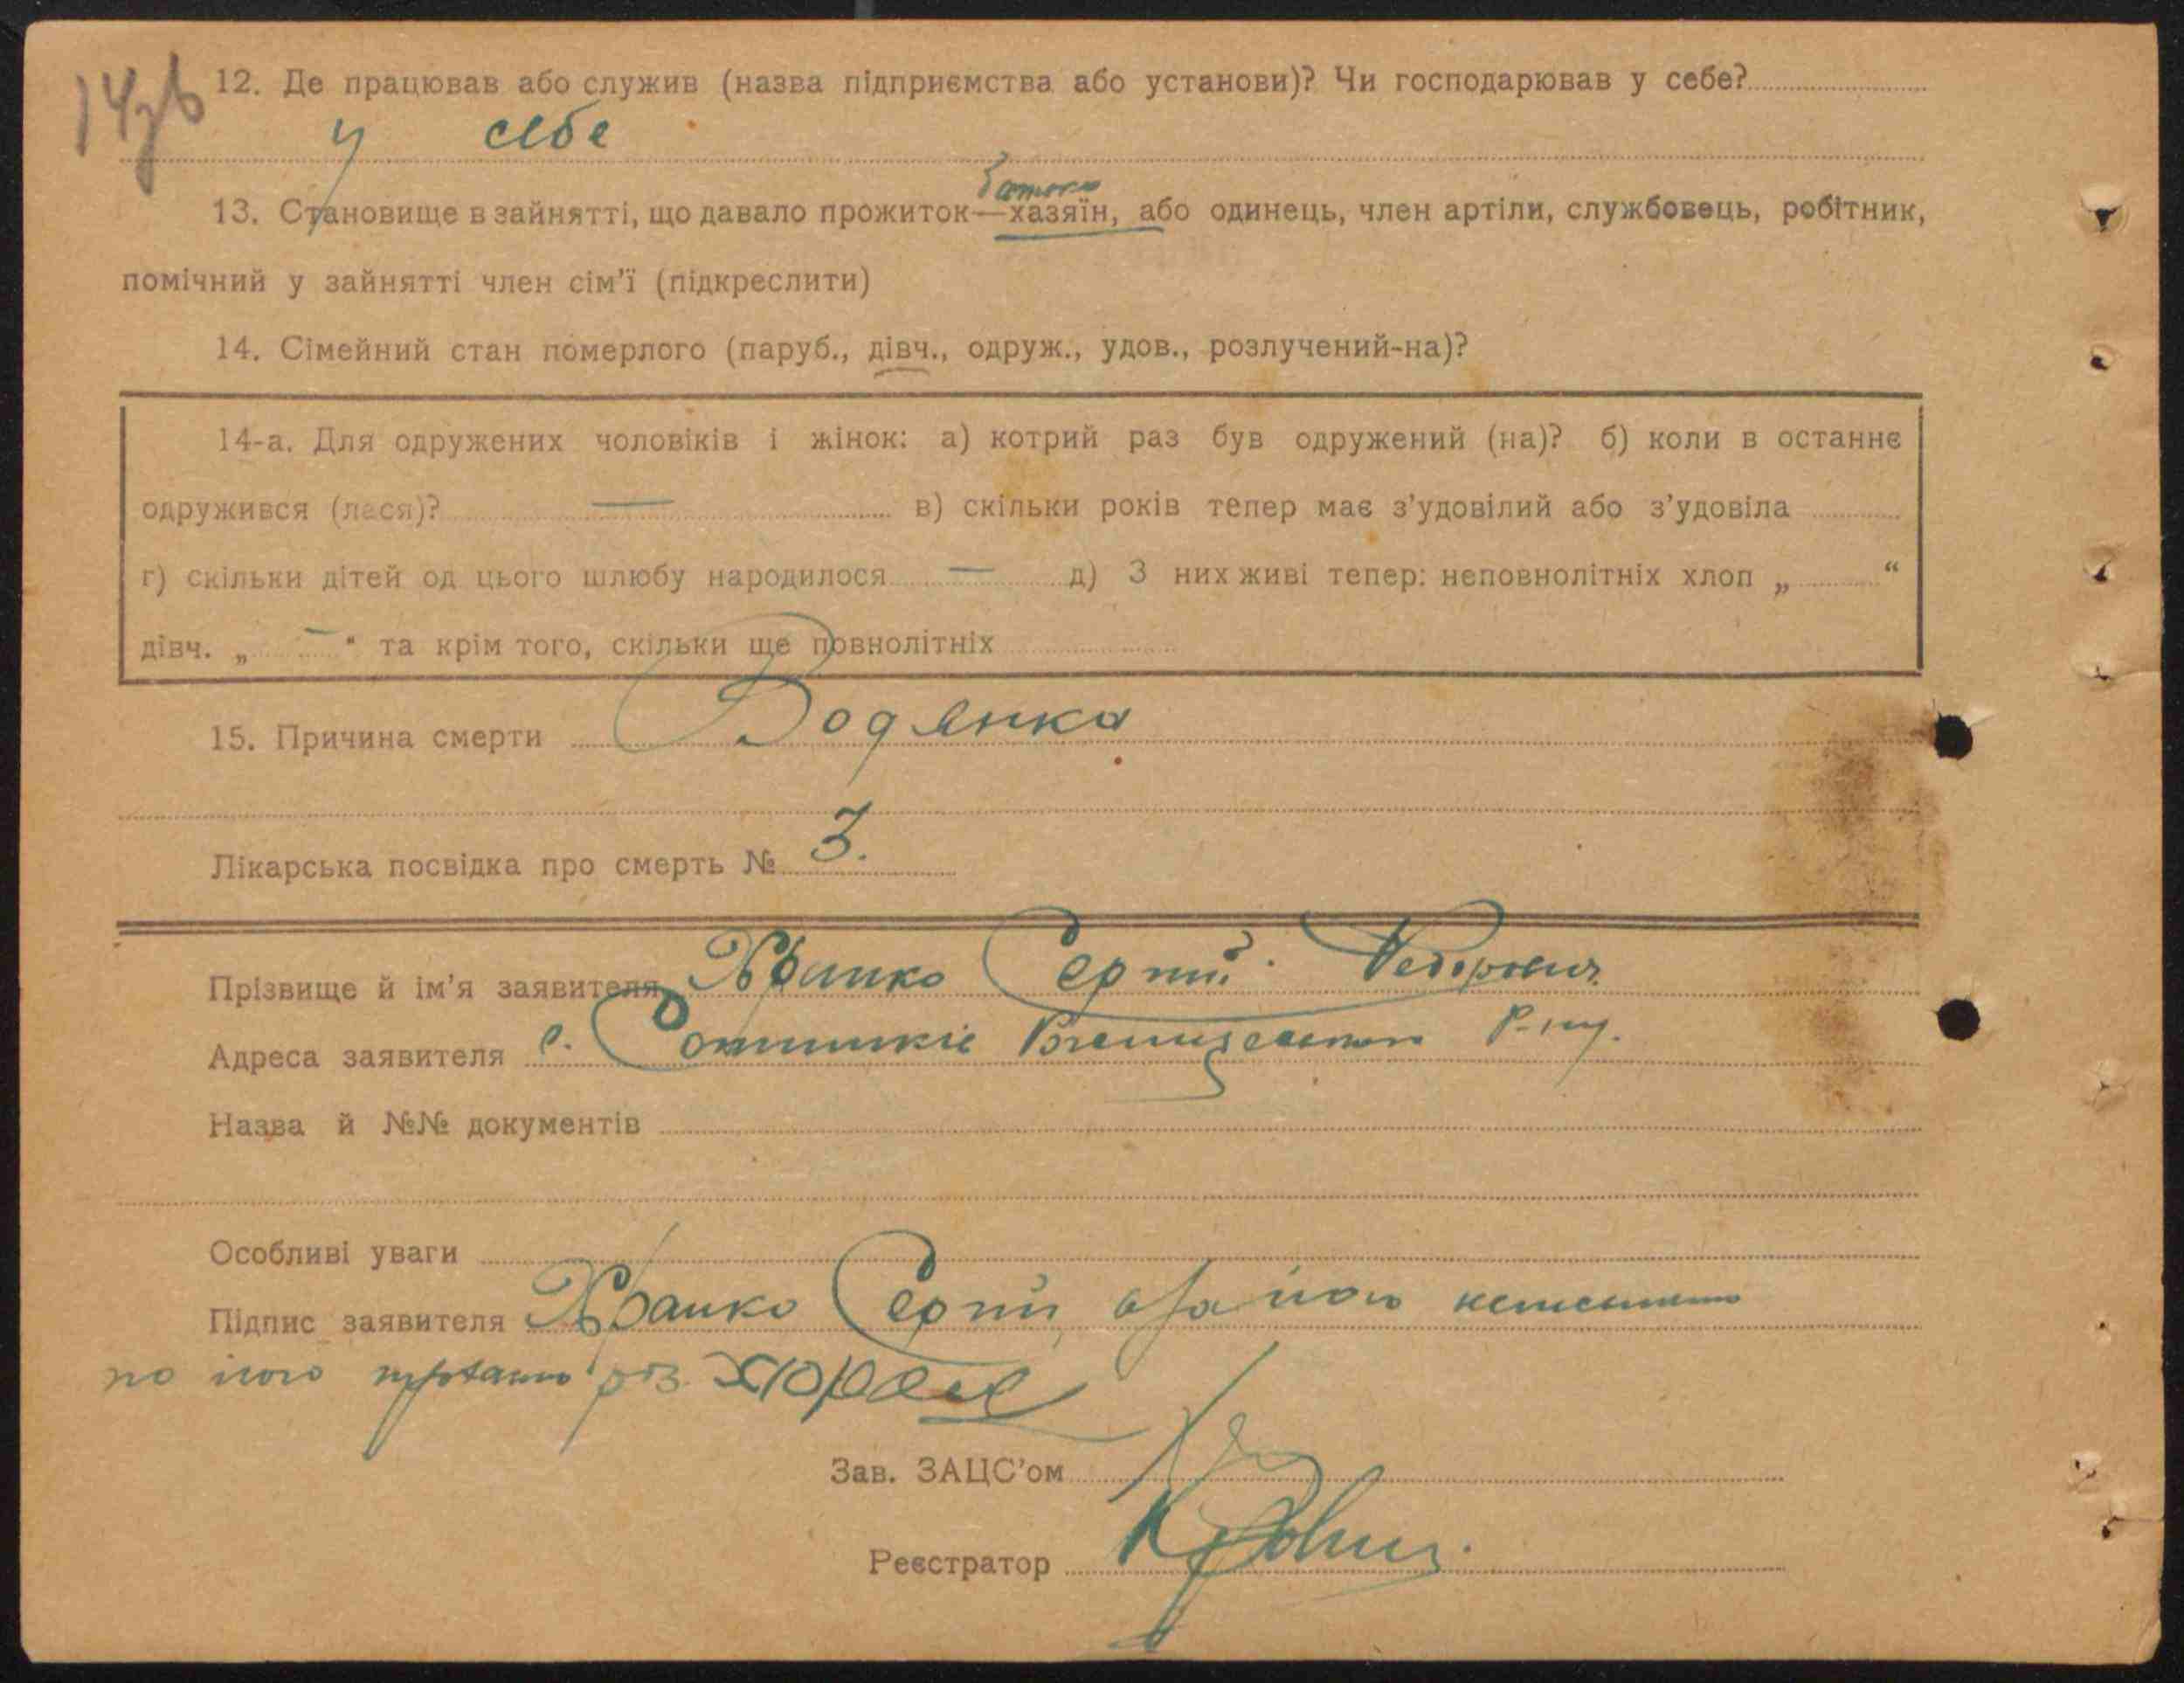 14зв
12. Де працював або служив (назва підприємства або установи)? Чи господарював у себе?
у себе
батько
13. Становище в зайнятті, що давало прожиток—хазяїн, або одинець, член артіли, службовець, робітник,
помічний у зайнятті член сім'ї (підкреслити)
14. Сімейний стан померлого (паруб., дівч., одруж., удов., розлучений-на)?
14-а. Для одружених чоловіків і жінок: а) котрий раз був одружений (на)? б) коли в останнє
одружився (лася)? — в) скільки років тепер має з'удовілий або з'удовіла
г) скільки дітей од цього шлюбу народилося — д) З них живі тепер: неповнолітніх хлоп „ “
дівч. „ — “ та крім того, скільки ще повнолітніх
15. Причина смерти Водянка
Лікарська посвідка про смерть № 3.
Прізвище й ім'я заявителя Сергій Федорович
Адреса заявителя с. Р-ну.
Назва й №№ документів
Особливі уваги
Підпис заявителя Сергій а за його
по його
Зав. ЗАЦС'ом
Реєстратор